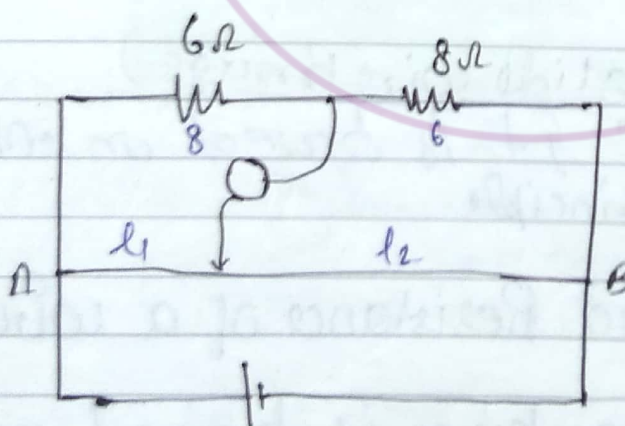 6Ω 8Ω
8 6
l1 l2
A B